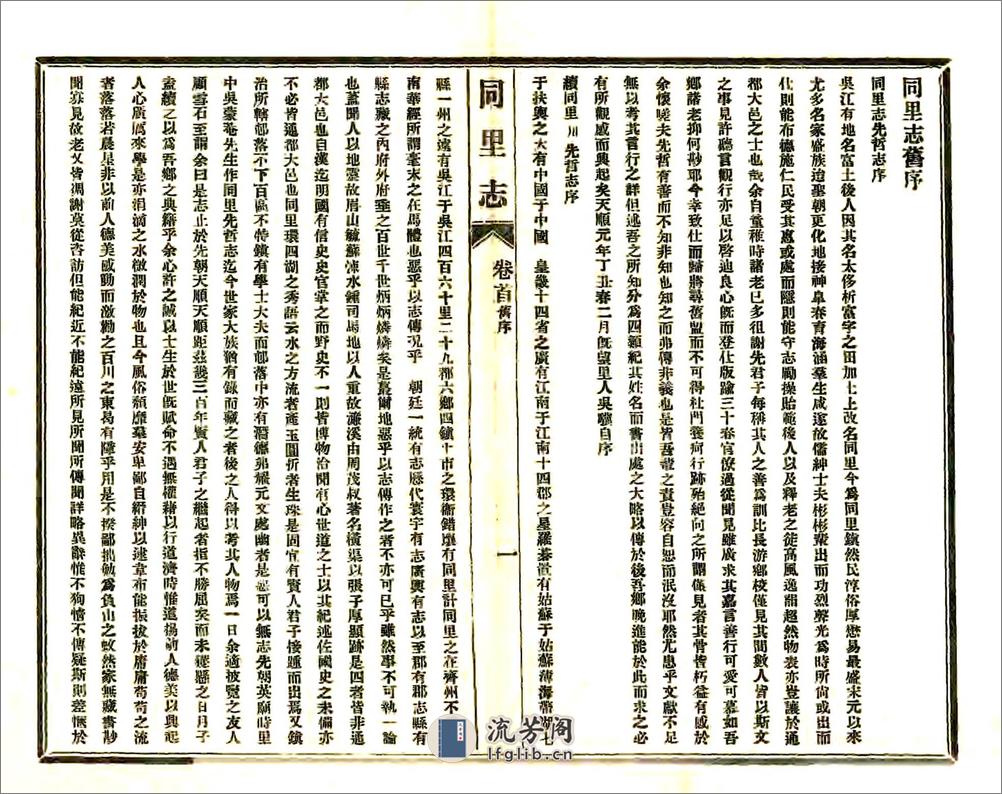 同里志舊序
同里志先哲志序
吳江有地名富土後人因其名太侈析富字之田加土上故名同里今爲同里鎮然民淳俗厚懋易最盛宋元以來
尤多名家盛族迨聖朝更化地接神臯春育海涵羣生咸遂故儒紳士夫彬彬輩出而功烈聲光爲時所尚或出而
仕則能布德施仁民受其惠或處而隱則能守志勵操貽範後人以及釋老之徒高風逸韻超然物表亦豈讓於通
都大邑之士也哉余自童稚時諸老已多徂謝先君子每稱其人之善爲訓比長游鄉校僅見其間數人皆以斯文
之事見許聽言觀行亦足以啓迪良心旣而登仕版踰三十春官僚過從聞見雖廣求其嘉言善行可愛可慕如吾
鄉諸老抑何尠耶今幸致仕而歸將尋舊盟而不可得杜門養疴行跡殆絶向之所謂僅見者其骨皆朽益有感於
余懷嗟夫先哲有善而不知非知也知之而弗傳非義也是皆吾輩之責豈容自恕而泯沒耶然尤患乎文獻不足
無以考其言行之詳但述吾之所知分爲四類紀其姓名而書出處之大略以傳於後吾鄉晚進能於此而求之必
有所觀感而興起矣天順元年丁丑春二月旣望里人吳驥自序
續同里 先哲志序
于扶輿之大有中國于中國 皇畿十四省之廣有江南于江南十四郡之星羅棊置有姑蘇于姑蘇薄海 七
同里志 卷首 舊序 一
縣一州之遠有吳江于吳江四百六十里二十九都六鄉四鎮十市之環衞錯壤有同里計同里之在濟州不
南華經所謂毫末之在馬體也惡乎以志傳况乎 朝廷一統有志歷代寰宇有志廣輿有志以至郡有郡志縣有
縣志藏之內府外府垂之百世千世炳炳燐燐矣是蕞爾地惡乎以志傳作之者不亦可已乎雖然事不可執一論
也蓋聞人以地靈故眉山毓蘇涑水鍾司馬地以人重故濂溪由周茂叔著名橫渠以張子厚顯跡是四者皆非通
都大邑也自漢迄明國有信史史官掌之而野史不一則皆博物洽聞有心世道之士以其紀述佐國史之未備亦
不必皆通都大邑也同里環四湖之秀語云水之方流者產玉圓折者生珠是固宜有賢人君子接踵而出焉又鎮
治所轄郡落不下百區不特鎮有學士大夫而郡落中亦有潛德弗耀元文處幽者是惡可以無志先朝英廟時里
中吳蒙菴先生作同里先哲志迄今世家大族猶有錄而藏之者後之人得以考其人物焉一日余適被覽之友人
顧雪石至謂余曰是志止於先朝天順天順距茲幾三百年賢人君子之繼起者指不勝屈矣而未穩懸之日月子
盍續之以爲吾鄉之典籍乎余心許之誠以士生於世旣賦命不遇無權藉以行道濟時惟道揚前人德美以興起
人心廣厲來學是亦涓滴之水微潤於物也且今風俗頹靡羣安卑鄙自縉紳以逮韋布能振拔於庸庸苟苟之流
者落落若晨星非以前人德美感動而激勵之百川之東曷有障乎用是不揆鄙拙勉爲負山之蚊然家無藏書尠
聞寡見故老又皆凋謝莫從咨訪但能紀近不能紀遠所見所聞所傳聞詳略異辭惟不狥情不傳疑斯則差愜於
流芳閣
lfglib.cn